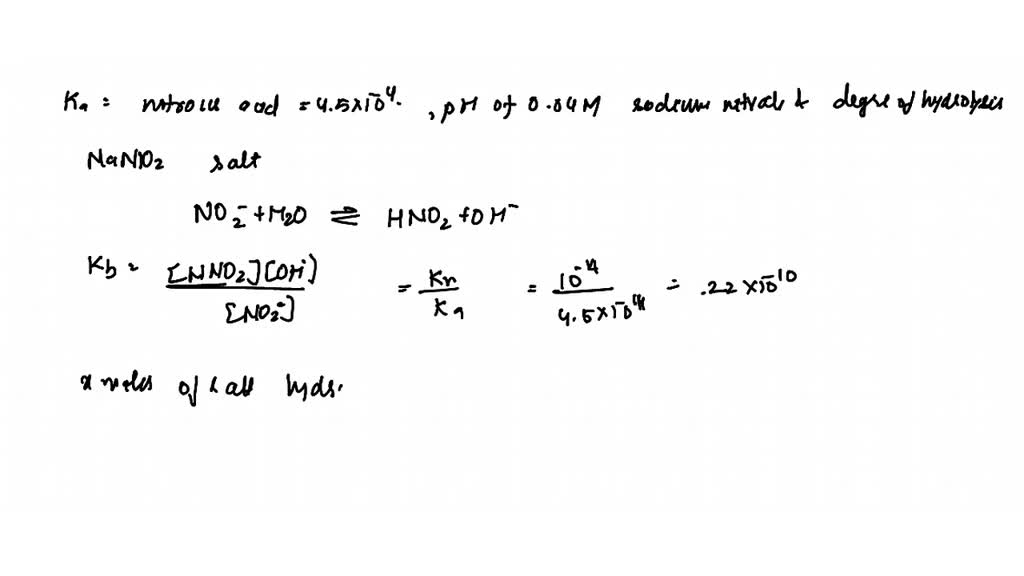 Ka = nitrous acid = 4.5×10⁻⁴, pH of 0.04M sodium nitrite & degree of hydrolysis
NaNO₂ salt
NO₂⁻ + H₂O ⇌ HNO₂ + OH⁻
Kb = [HNO₂][OH⁻] / [NO₂⁻] = Kw / Ka = 10⁻¹⁴ / 4.5×10⁻⁴ = .22×10⁻¹⁰
x moles of salt hyds.